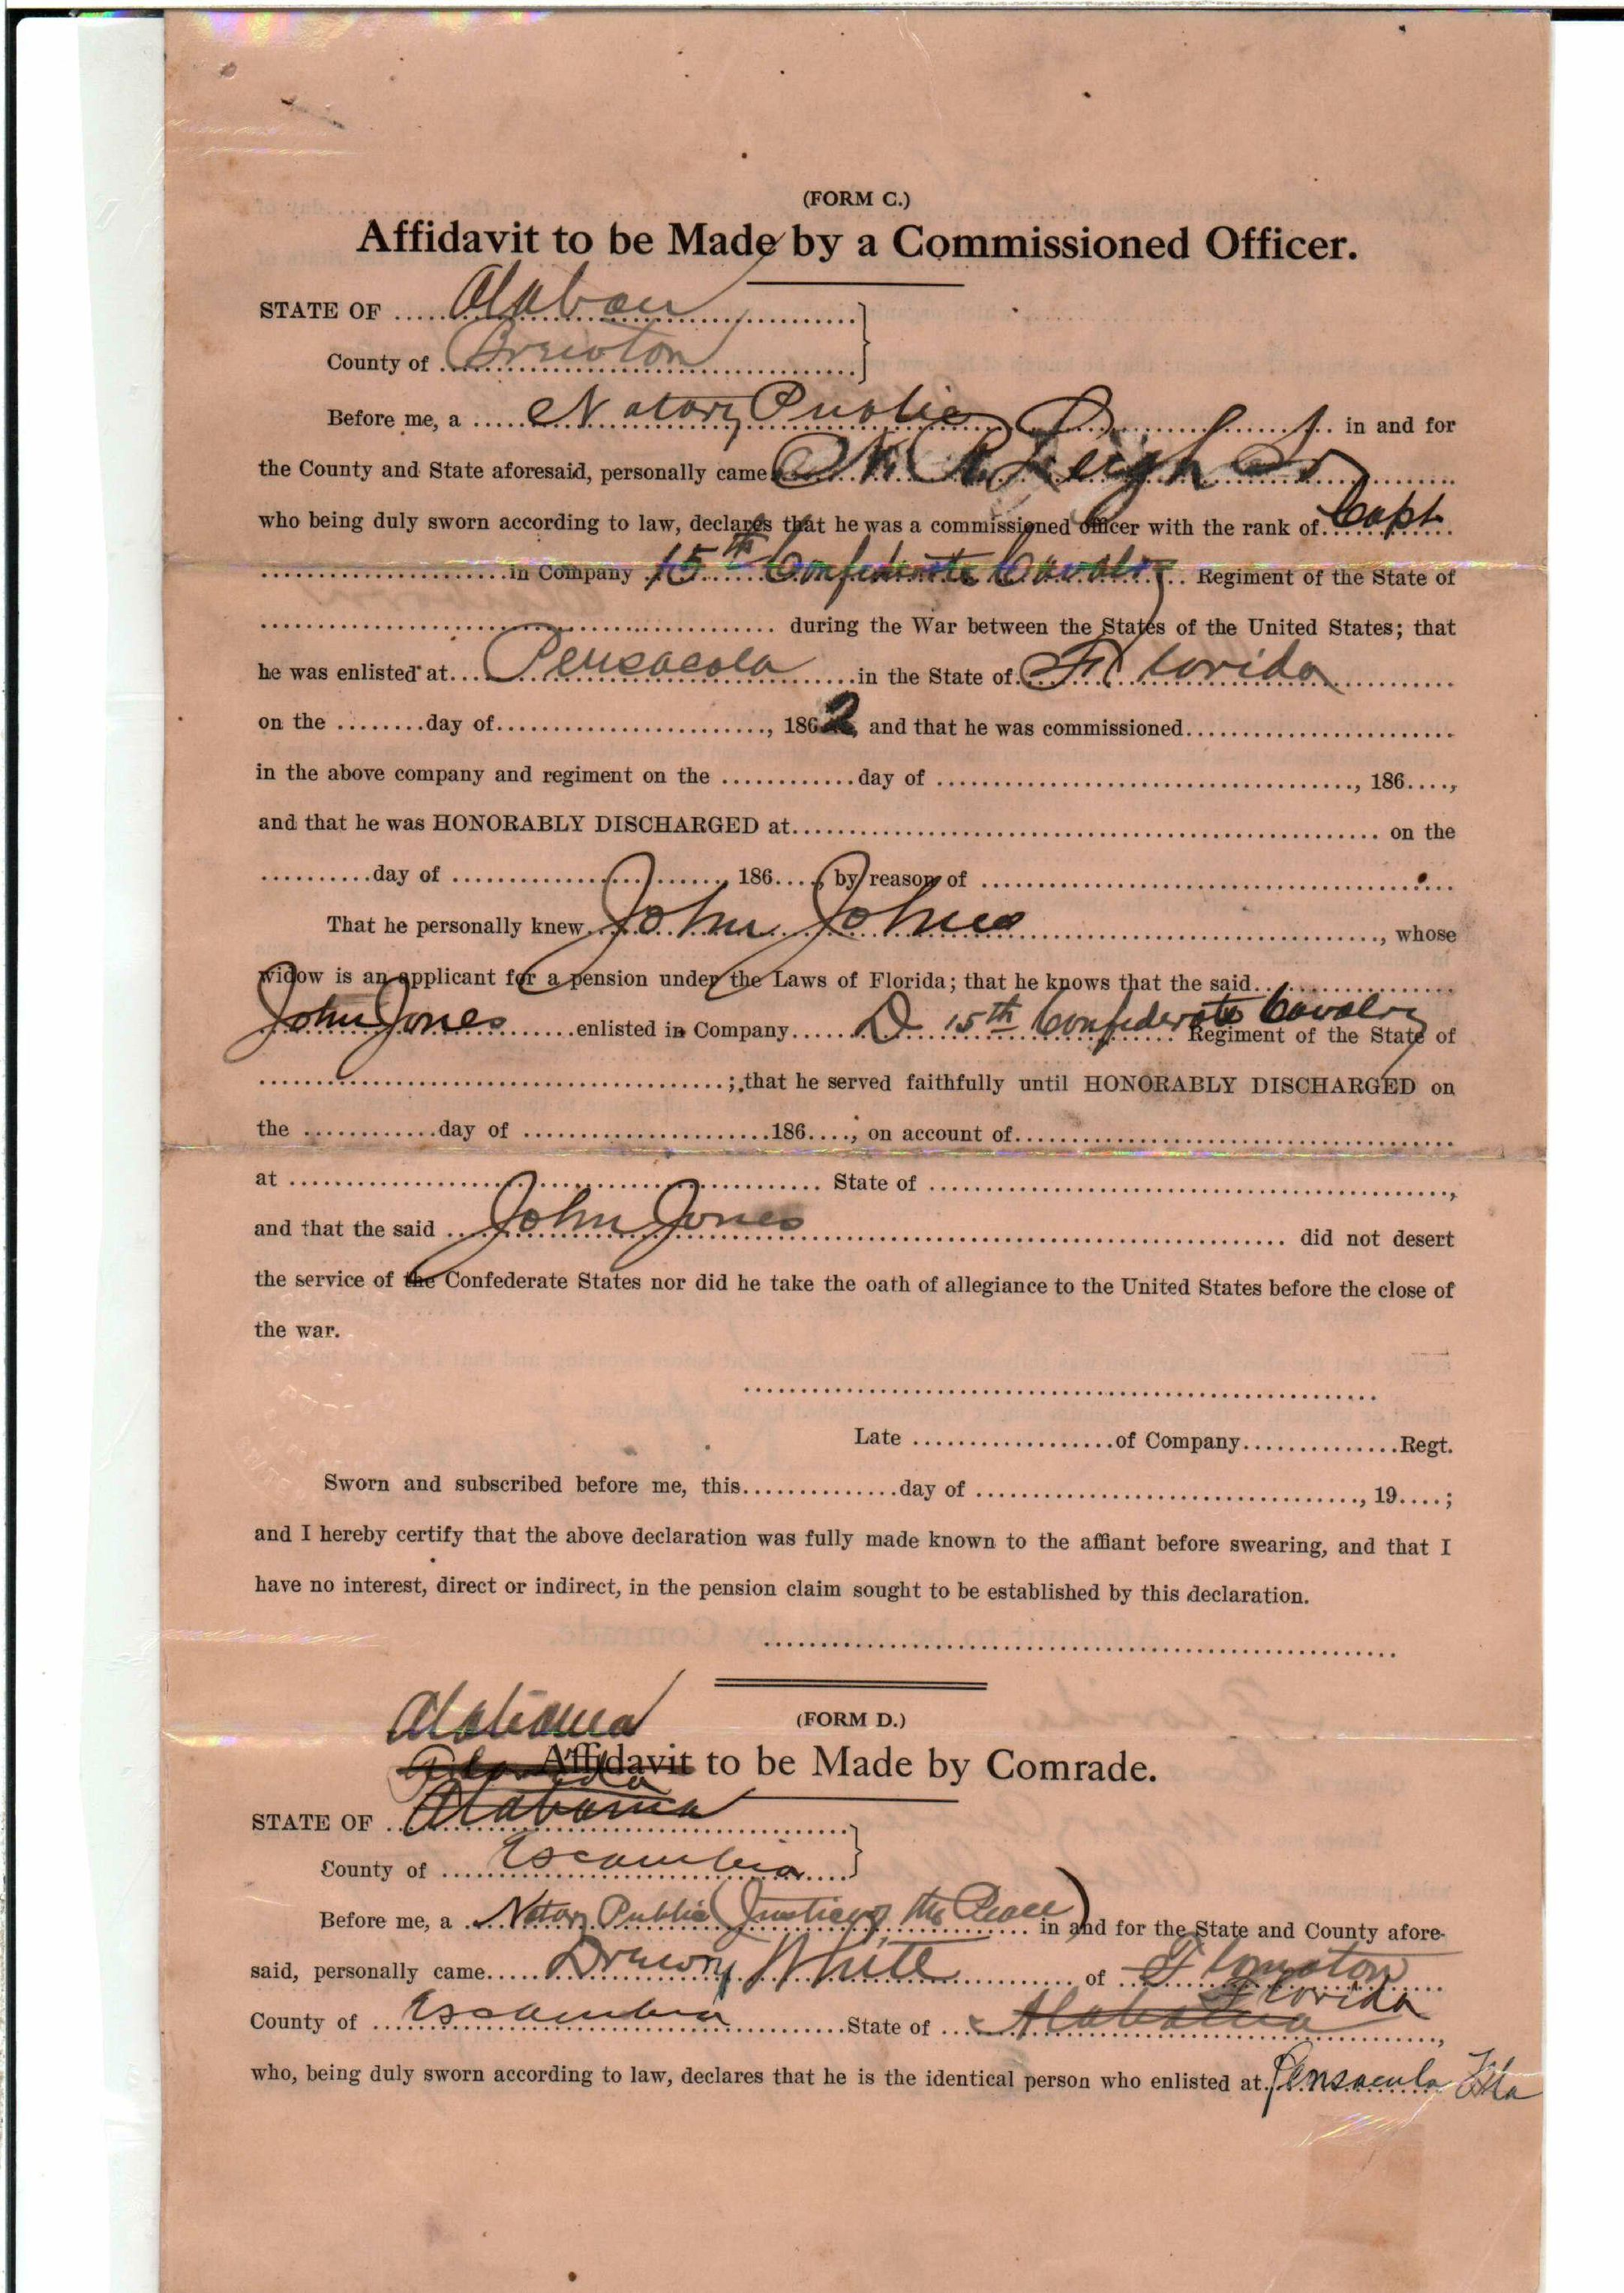 (FORM C.)
Affidavit to be Made by a Commissioned Officer.
STATE OF ..... Alabam
County of ..... Brewton
Before me, a ..... Notary Public ..... in and for
the County and State aforesaid, personally came ..... Leigh
who being duly sworn according to law, declares that he was a commissioned officer with the rank of. Capt
..... in Company 15th Confederate Cavalry ..... Regiment of the State of
..... during the War between the States of the United States; that
he was enlisted at.... Pensacola ..... in the State of. Florida .....
on the ........day of......................, 1862, and that he was commissioned.....
in the above company and regiment on the ............day of ....................., 186....,
and that he was HONORABLY DISCHARGED at..................... on the
..........day of ......................, 186...., by reason of .....................
That he personally knew. John Jones ....................., whose
widow is an applicant for a pension under the Laws of Florida; that he knows that the said.....
John Jones .......enlisted in Company...... D 15th Confederate Cavalry Regiment of the State of
.....................; that he served faithfully until HONORABLY DISCHARGED on
the ............day of ......................186...., on account of.....................
at ..................... State of .....................,
and that the said .... John Jones ..................... did not desert
the service of the Confederate States nor did he take the oath of allegiance to the United States before the close of
the war.
.....................
Late ..................of Company..............Regt.
Sworn and subscribed before me, this..............day of ....................., 19....;
and I hereby certify that the above declaration was fully made known to the affiant before swearing, and that I
have no interest, direct or indirect, in the pension claim sought to be established by this declaration.
.....................
Alabama
(FORM D.)
Affidavit to be Made by Comrade.
STATE OF .. Alabama .....
County of ..... Escambia ....
Before me, a .. Notary Public (Justice of the Peace) in and for the State and County afore-
said, personally came..... Drewry White ..... of ... Flomaton
Florida
County of ... Escambia .....State of ... Alabama .....,
who, being duly sworn according to law, declares that he is the identical person who enlisted at. Pensacola Fla